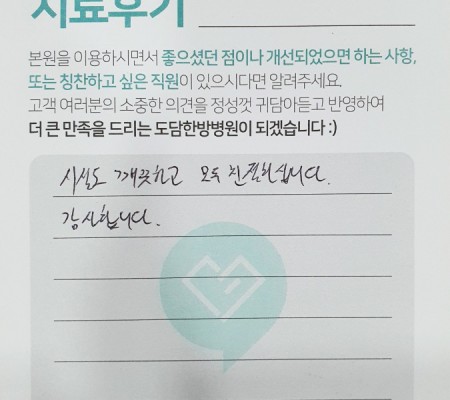 치료후기
본원을 이용하시면서 좋으셨던 점이나 개선되었으면 하는 사항,
또는 칭찬하고 싶은 직원이 있으시다면 알려주세요.
고객 여러분의 소중한 의견을 정성껏 귀담아듣고 반영하여
더 큰 만족을 드리는 도담한방병원이 되겠습니다 :)
시설도 깨끗하고 모두 친절하십니다.
감사합니다.